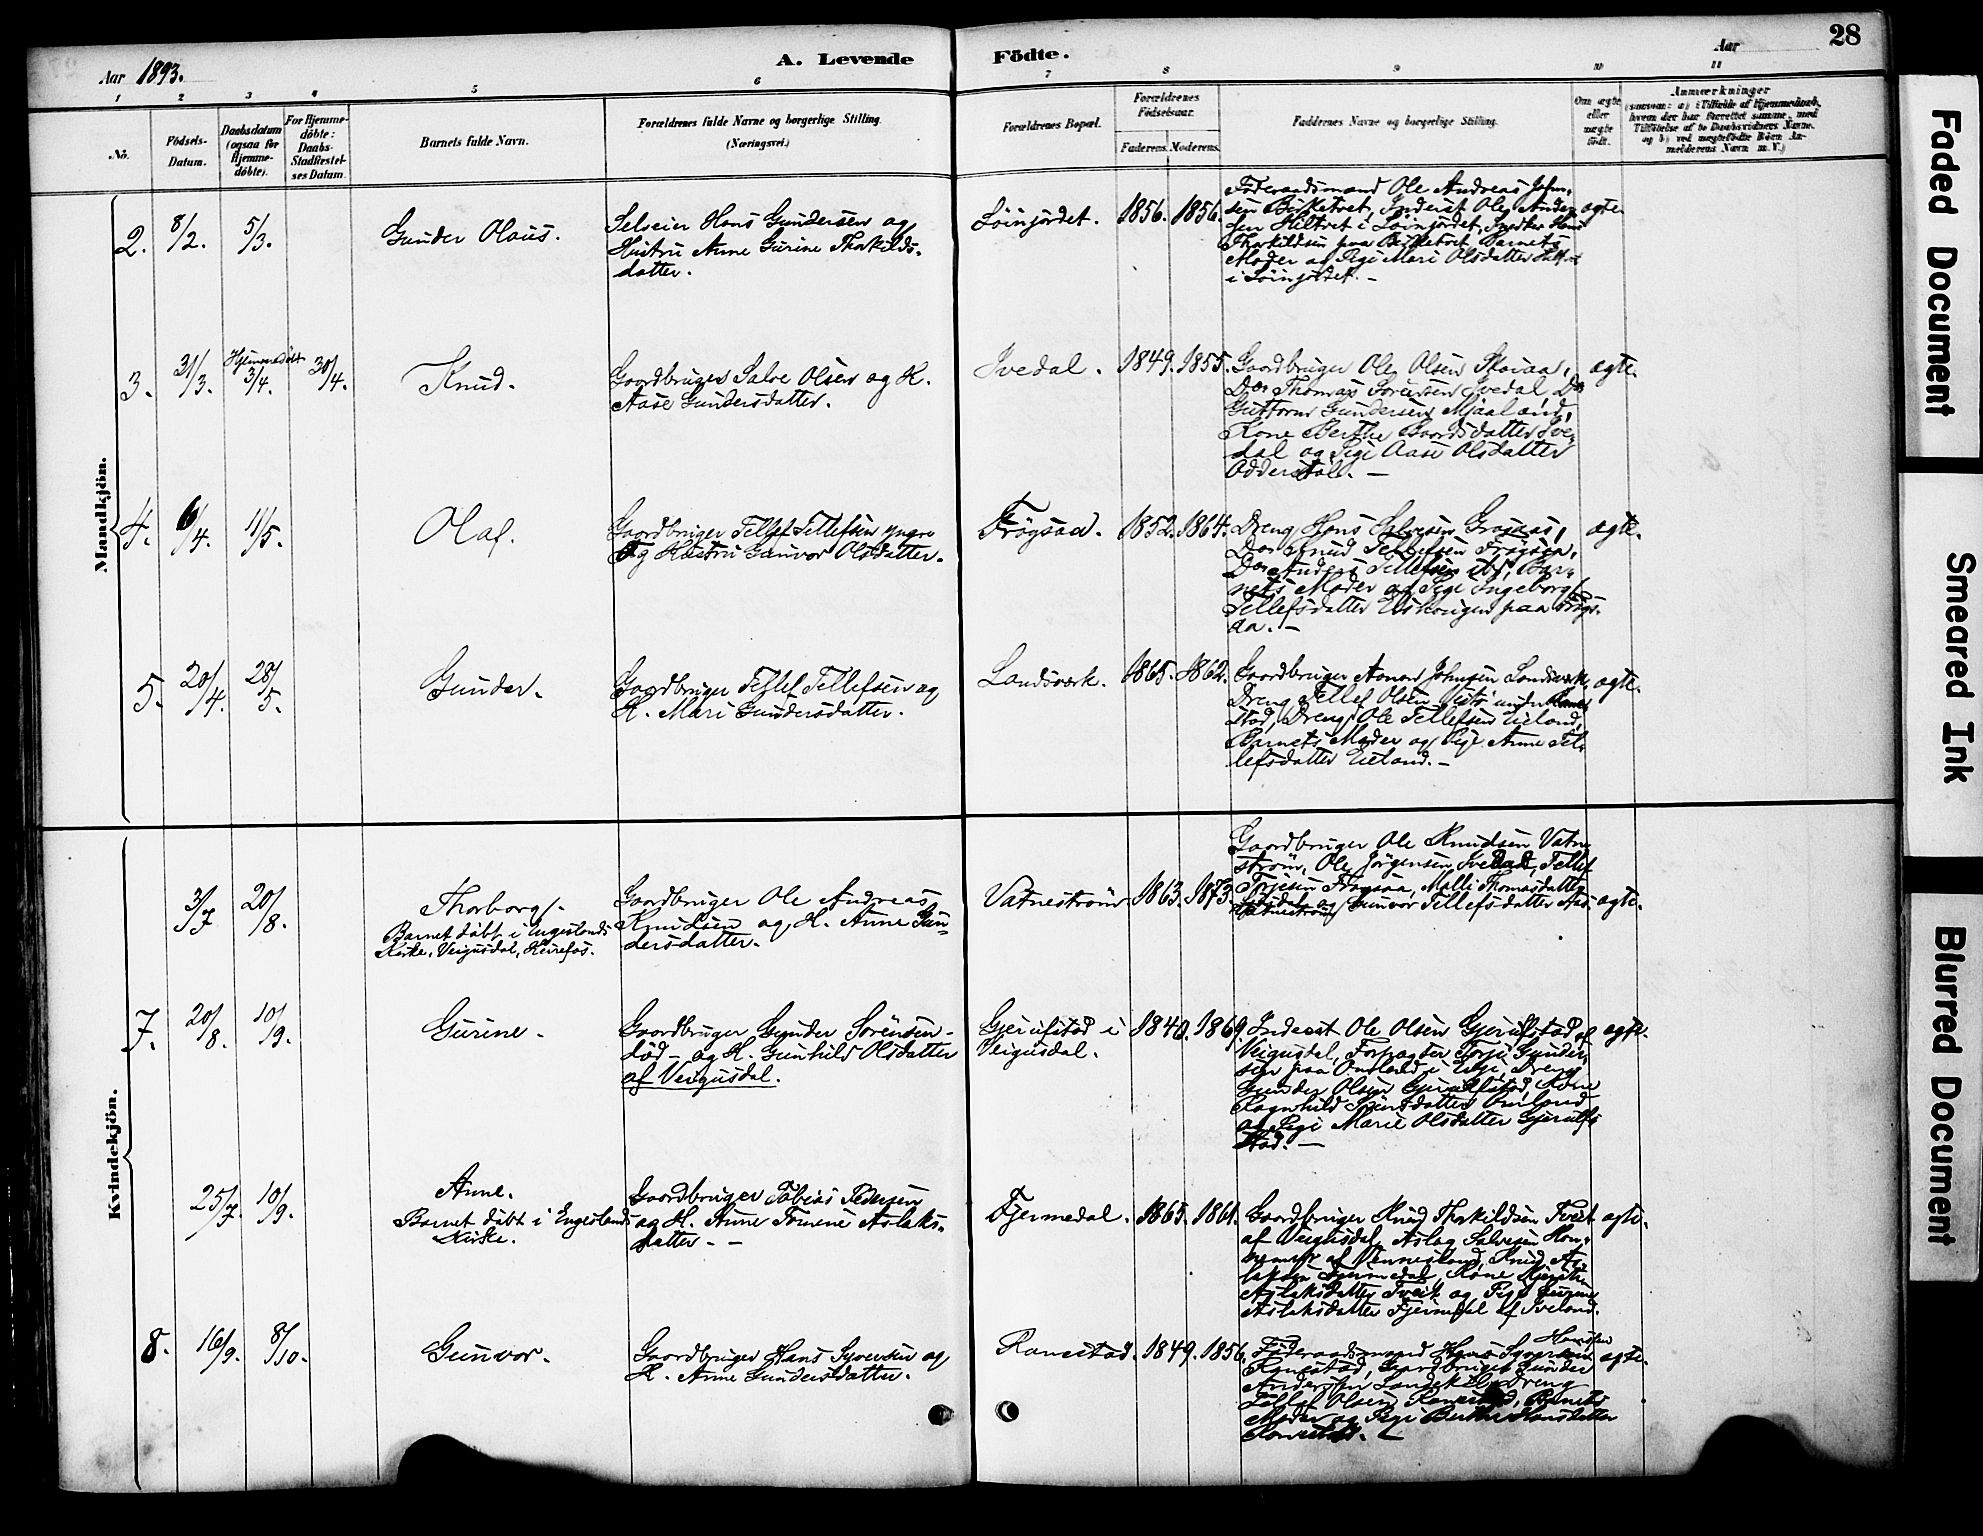 28
Aar 1893.
A. Levende
Födte.
Aar
1 2 3 4 5 6 7 8 9 10 11
No.
Födsels-
Datum.
Daabsdatum
(ogsaa för
Hjemme-
döbte).
For Hjemme-
döbte:
Daabs-
Stadfæstel-
ses Datum.
Barnets fulde Navn.
Forældrenes fulde Navne og borgerlige Stilling
(Næringsvei.)
Forældrenes Bopæl.
Forældrenes
Födselsaar.
Faderens. Moderens.
Faddernes Navne og borgerlige Stilling.
Om ægte
eller
uægte
födt.
Anmærkninger
Mandkjön.
2. 8/2. 5/3.
Gunder Olaus.
Selveier Hans Gundersen og
Hustru Anne Gurine Thorkilds-
datter.
Löinjordet. 1856. 1856.
Föderaadsmand Ole Andreas John-
sen Birketvet, Inderst Ole Ander-
sen Hiltvet i Löinjordet, Snedker Hans
Thorkildsen paa Birketvet, Barnets
Moder og Pige Mari Olsdatter
i Löinjordet. -
ægte
3. 31/3. Hjemmedöbt 3/4. 30/4.
Knud.
Gaardbruger Salve Olsen og H.
Aase Gundersdatter.
Ivedal. 1849. 1855.
Gaardbruger Ole Olsen Skaiaa,
Do Thomas Sörensen Ivedal, Do
Guttorm Gundersen Mjaaland,
Kone Berthe Baardsdatter Ive-
dal og Pige Aase Olsdatter
Odderstöl. -
ægte.
4. 6/4. 11/5.
Olaf.
Gaardbruger Tellef Tellefsen yngre
og Hustru Gunvor Olsdatter.
Frögsaa. 1852. 1864.
Dreng Hans Salvesen
Do Knud Tellefsen Frögsaa,
Do Anders Tellefsen ibd, Bar-
nets Moder og Pige Ingeborg
Tellefsdatter paa Frögs-
aa. -
ægte.
5. 20/4. 28/5.
Gunder.
Gaardbruger Tellef Tellefsen og
H. Mari Gundersdatter.
Landsverk. 1865. 1862.
Gaardbruger Aanon Johnsen Landsverk,
Dreng Tellef Olsen under Rane-
stad, Dreng Ole Tellefsen Ueland,
Barnets Moder og Pige Anne Tel-
lefsdatter Ueland. -
ægte.
Kvindekjön.
3/7 20/8.
Thorborg.
Barnet döbt i Engeslands
Kirke, Veigusdal, Herefos.
Gaardbruger Ole Andreas
Knudsen og H. Anne Gun-
dersdatter.
Vatneström 1863. 1873.
Gaardbruger Ole Knudsen Vatne-
ström, Ole Jörgensen Ivedal, Tellef
Terjesen Frögsaa, Malli Thomasdatter
Ivedal og Gunvor Tellefsdatter
Vatneström
ægte.
7. 20/8. 10/9.
Gurine.
Gaardbruger Gunder Sörensen -
död - og H. Gunhild Olsdatter
af Veigusdal.
Gjerulfstad i
Veigusdal.
1840. 1869.
Inderst Ole Olsen Gjerulfstad af
Veigusdal, Forpagter Terje Gunder-
sen paa Omland i Veigs, Dreng
Gunder Olsen Gjerulfstad, Kone
Ragnhild Omland
og Pige Marie Olsdatter Gjerulf-
stad. -
ægte.
25/7. 10/9.
Anne.
Barnet döbt i Engeslands
Kirke.
Gaardbruger Tobias Pedersen
og H. Anne Tomine Aslaks-
datter. -
Fjermedal. 1865. 1861.
Gaardbruger Knud Thorkildsen Tveit
af Veigusdal, Aslag Salvesen Hon-
nemyr af Vennesland, Knud As-
laksen Fjermedal, Kone
Aslaksdatter Tveit og Pige Gurine
Aslaksdatter Fjermedal af Iveland.
ægte.
8. 16/9. 8/10.
Gunvor.
Gaardbruger Hans Syversen og
H. Anne Gundersdatter.
Ranestad. 1849. 1856.
Föderaadsmand Syvert Hanssen
Ranestad, Gaardbruger Gunder
Andersen Dreng
Tellef Olsen Ranestad, Barnets
Moder og Pige Berthe Hansdatter
Ranestad. -
ægte.
Faded Document
Smeared Ink
Blurred Document